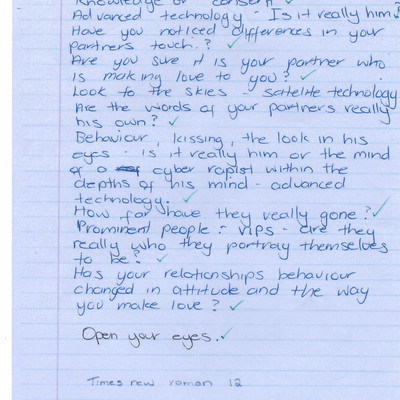 knowledge or consent ✓
Advanced technology - Is it really him?
Have you noticed differences in your
partners touch.? ✓
Are you sure it is your partner who
is making love to you? ✓
Look to the skies - satelite technology
Are the words of your partners really
his own? ✓
Behaviour, kissing, the look in his
eyes - is it really him or the mind
of a cyber rapist within the
depths of his mind - advanced
technology. ✓
How far have they really gone? ✓
Prominent people - VIPs - are they
really who they portray themselves
to be? ✓
Has your relationships behaviour
changed in attitude and the way
you make love? ✓
Open your eyes. ✓
Times new roman 12